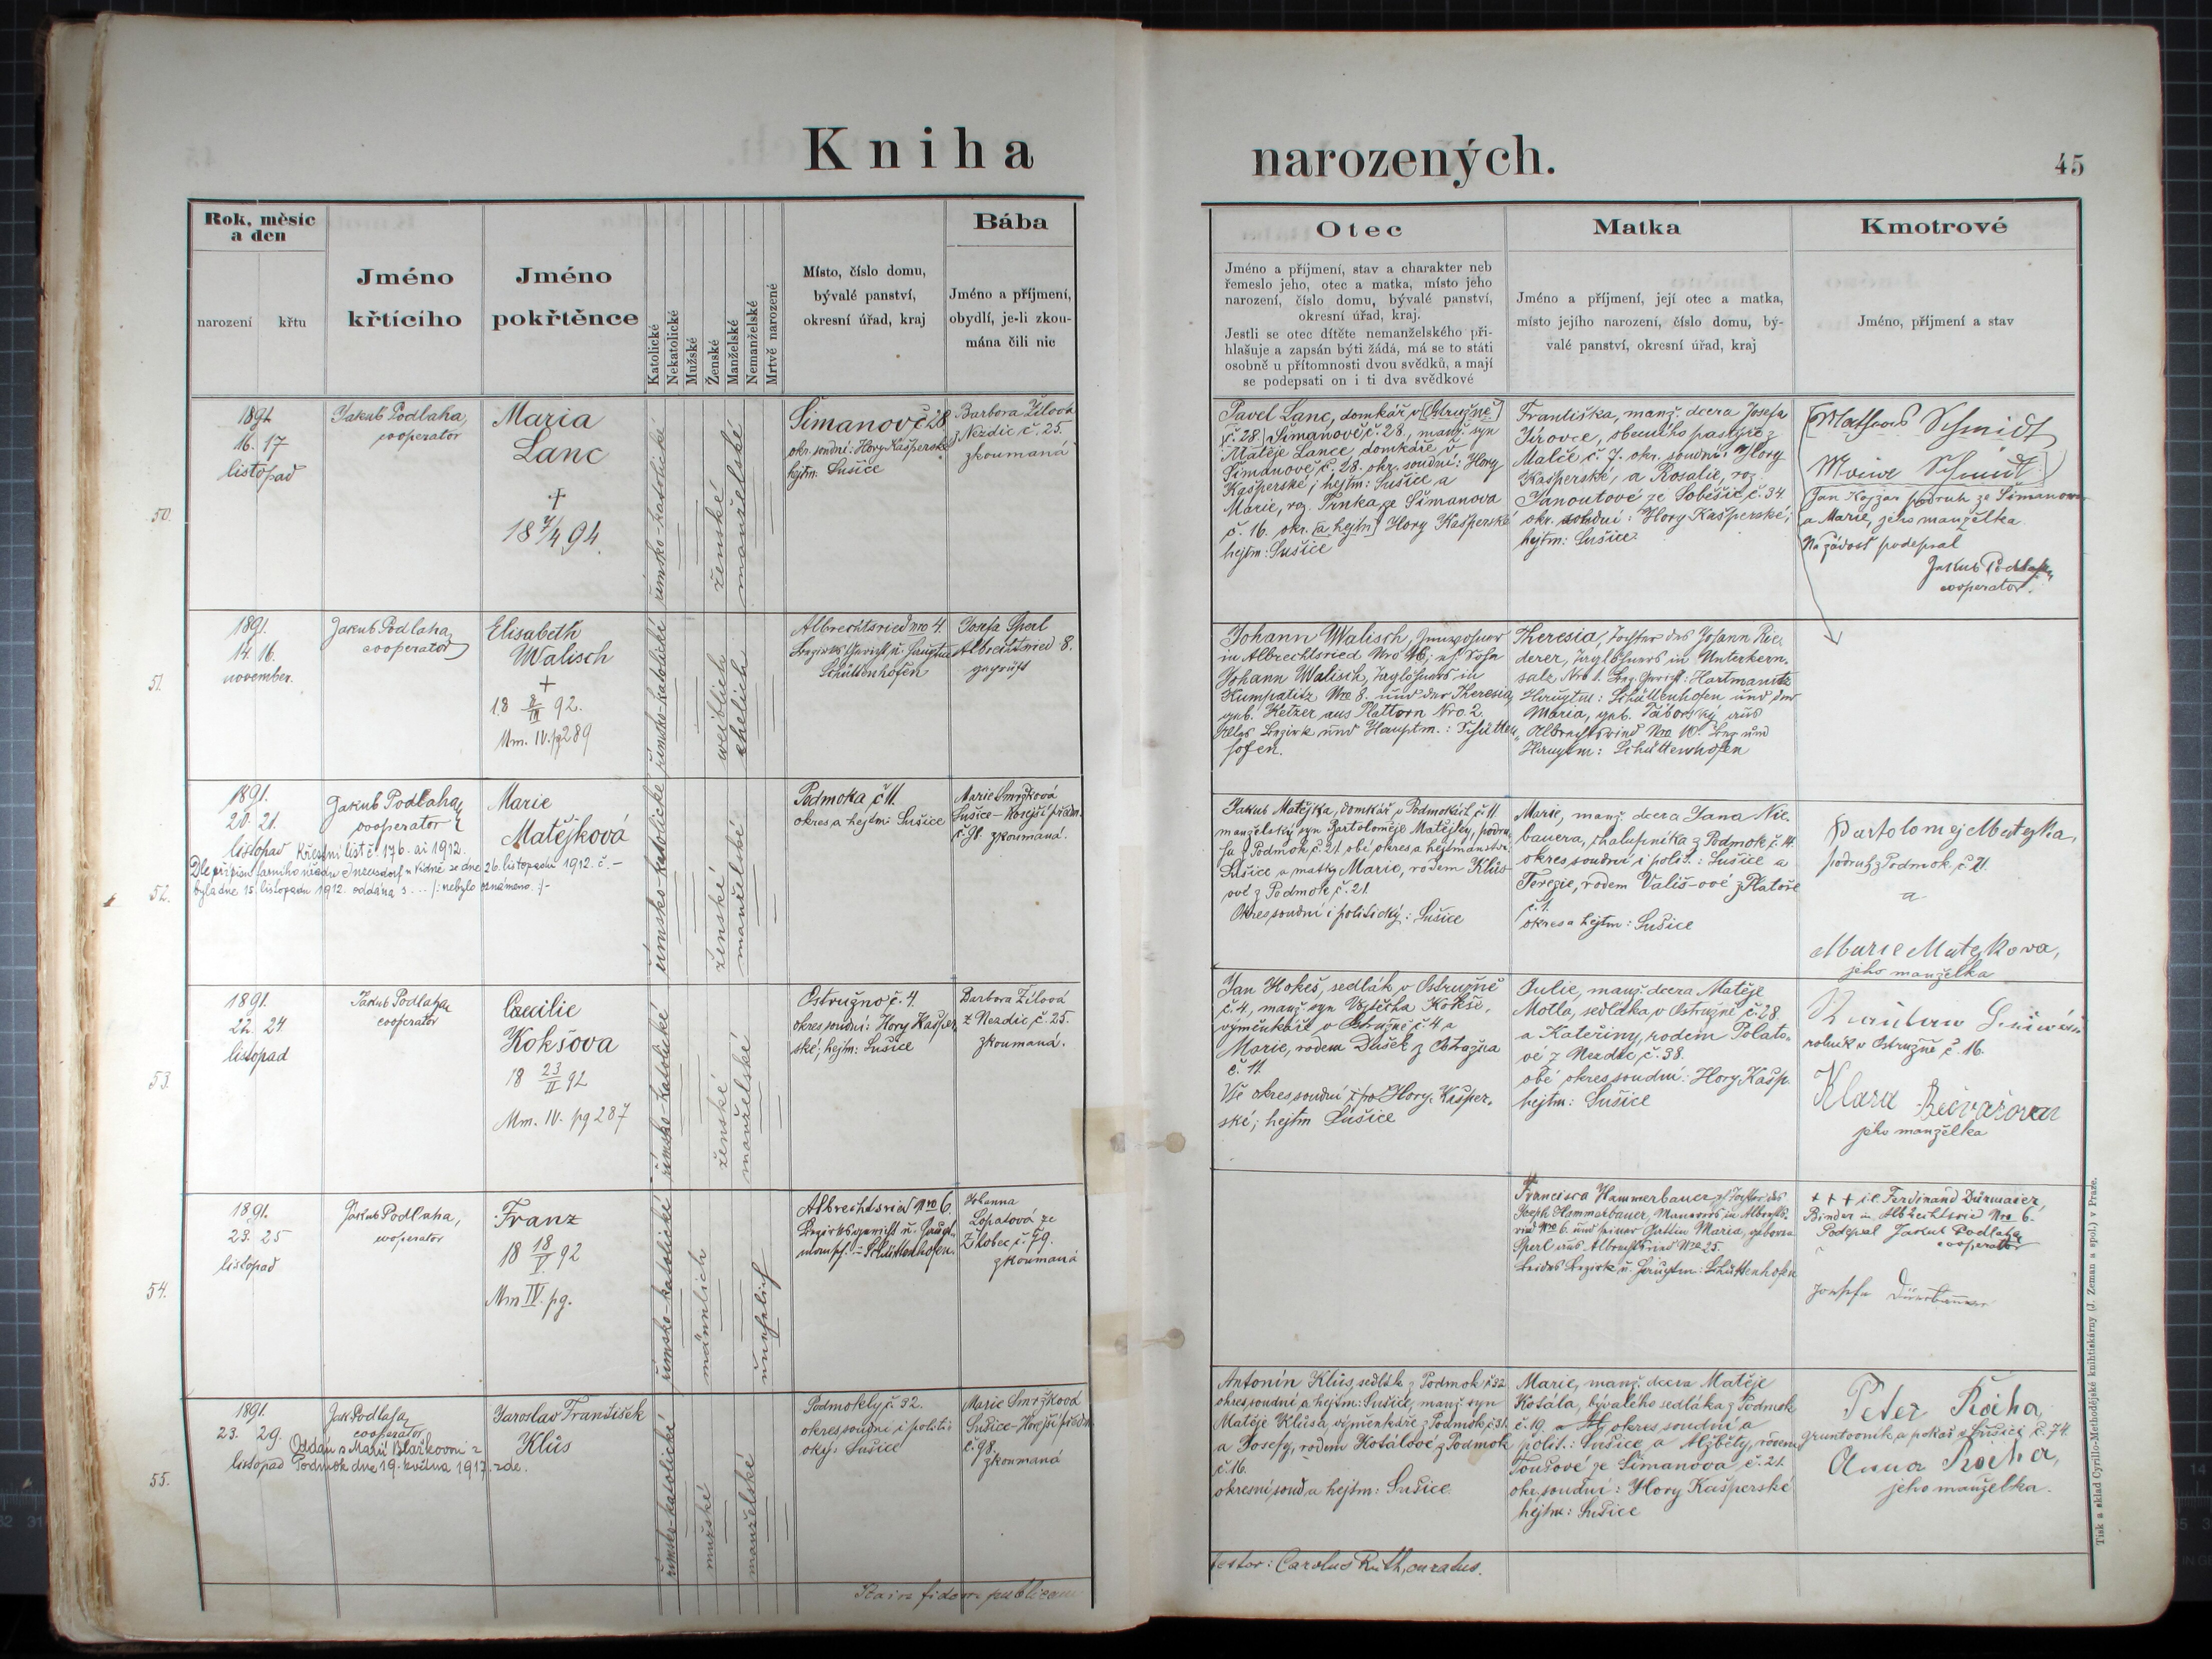 Kniha narozených.
45
Rok, měsíc
a den
narození
křtu
Jméno
křtícího
Jméno
pokřtěnce
Katolické
Nekatolické
Mužské
Ženské
Manželské
Nemanželské
Mrtvě narozené
Místo, číslo domu,
bývalé panství,
okresní úřad, kraj
Bába
Jméno a příjmení,
obydlí, je-li zkou-
mána čili nic
Otec
Jméno a příjmení, stav a charakter neb
řemeslo jeho, otec a matka, místo jeho
narození, číslo domu, bývalé panství,
okresní úřad, kraj.
Jestli se otec dítěte nemanželského při-
hlašuje a zapsán býti žádá, má se to státi
osobně u přítomnosti dvou svědků, a mají
se podepsati on i ti dva svědkové
Matka
Jméno a příjmení, její otec a matka,
místo jejího narození, číslo domu, bý-
valé panství, okresní úřad, kraj
Kmotrové
Jméno, příjmení a stav
50.
1891
16. 17
listopad
Jakub Podlaha,
cooperator
Maria
Lanc
†
18 7/4 94.
římsko-katolické
ženské
manželské
Šimanov č 28
okr. soudní: Hory Kašperské
hejtm: Sušice
Barbora Žílová
z Nezdic č. 25.
zkoumaná
Pavel Lanc, domkář v [Ostružně]
[č. 28.] Šimanově č. 28, manž. syn
Matěje Lance, domkáře v
Šimanově č. 28. okr. soudní: Hory
Kašperské; hejtm: Sušice a
Marie, roz. Trnka ze Šimanova
č. 16. okr. [a hejtm] Hory Kašperské
hejtm: Sušice
Františka, manž. dcera Josefa
Jírovce, obecního pastýře z
Malče č. 7. okr. soudní: Hory
Kašperské, a Rosalie, roz.
Janoutové ze Soběšic č. 34.
okr. soudní: Hory Kašperské;
hejtm: Sušice.
Schmidt
Schmidt
Jan Kojzar podruh ze Šimanova
a Marie, jeho manželka.
Na žádosť podepsal
Jakub Podlaha
cooperator.
51.
1891.
14. 16.
november.
Jakub Podlaha
cooperator
Elisabeth
Walisch
+
18 8/III 92.
Mm. IV. pg 289
římsko-katolické
weiblich
ehelich
Albrechtsried Nro 4.
Bezirks Gericht u. Hauptm
Schüttenhofen
Josefa Sperl
Albrechtsried 8.
geprüft
Johann Walisch, Inwohner
in Albrechtsried Nro 46; eh. Sohn
Johann Walisch, Taglöhners in
Kumpatitz Nro 8. und der Theresia
geb. Ketzer aus Plattorn Nro. 2.
Alles Bezirk und Hauptm.: Schütten-
hofen.
Theresia, Tochter des Johann Rie-
derer, Taglöhners in Unterkern-
salz Nro 1. Bez. Gericht: Hartmanitz
Hauptm: Schüttenhofen und der
Maria, geb. Táborský aus
Albrechtsried Nro 10. Bez und
Hauptm: Schüttenhofen
52.
1891.
20. 21.
listopad
Jakub Podlaha
cooperator
Křestní list č. 176. ai 1912.
Dle připisu farního úřadu Inzersdorf u Vídně ze dne 26. listopadu 1912. č. –
byla dne 15. listopadu 1912. oddána s ... /: nebylo oznámeno. :/-
Marie
Matějková
římsko-katolické
ženské
manželské
Podmoka č 11.
okres a hejtm: Sušice
Marie Smržková
Sušice – Horejší předm.
č. 91. zkoumaná.
Jakub Matějka, domkář v Podmokách č. 11.
manželský syn Bartoloměje Matějky, podru-
ha z Podmok č. 21. obé okres a hejtmanstvo:
Sušice a matky Marie, rodem Klůs-
ové z Podmok č. 21.
Okres soudní i politický: Sušice
Marie, manž. dcera Jana Nie-
bauera, chalupníka z Podmok č. 14.
okres soudní i polit.: Sušice a
Terezie, rodem Vališ-ové z Platoře
č. 1.
okres a hejtm: Sušice
Bartolomej Matejka,
podruh z Podmok č. 21.
a
Marie Matejkova,
jeho manželka
53.
1891.
22. 24.
listopad
Jakub Podlaha
cooperator
Caecilie
Kokšova
18 23/II 92
Mm. IV. pg 287
římsko-katolické
ženské
manželské
Ostružno č. 4.
okres soudní: Hory Kašper-
ské; hejtm: Sušice
Barbora Žílová
z Nezdic č. 25.
zkoumaná.
Jan Kokeš, sedlák v Ostružně
č. 4, manž. syn Vojtěcha Kokše,
výměnkáře v Ostružně č. 4 a
Marie, rodem Dušek z Ostružna
č. 11.
Vše okres soudní i po Hory Kašper-
ské; hejtm Sušice
Julie, manž. dcera Matěje
Motla, sedláka v Ostružně č. 28.
a Kateřiny, rodem Polato-
vé z Nezdic č. 38.
obé okres soudní: Hory Kašp.
hejtm: Sušice
rolník v Ostružně č. 16.
Klara
jeho manželka
54.
1891.
23. 25
listopad
Jakub Podlaha,
cooperator
Franz
18 18/V 92
Mm IV. pg.
římsko-katolické
männlich
unehelich
Albrechtsried Nro 6.
Bezirksgericht u. Haupt-
mansch. – Schüttenhofen
Johanna
Lopatová ze
Žlobec č. 79.
zkoumaná
Francisca Hammerbauer, eh. Tochter des
Joseph Hammerbauer, Maurers in Albrechts-
ried Nro 6. und seiner Gattin Maria, geborne
Sperl aus Albrechtsried Nro 25.
Beides Bezirk u. Hauptm: Schüttenhofen
+ + + i.e. Ferdinand Dürmaier,
Binder in Albrechtsried Nro 6.
Podepsal Jakub Podlaha
cooperator
Josefa
55.
1891.
23. 29.
listopad
Jak. Podlaha
cooperator
Oddán s Marií Blažkovou z
Podmok dne 19. května 1917. zde.
Jaroslav František
Klůs
římsko-katolické
mužské
manželské
Podmokly č 32.
okres soudní i politi-
cký: Sušice
Marie Smržková
Sušice-Horejší předm.
č. 98.
zkoumaná
Antonín Klůs, sedlák z Podmok č 32
okres soudní a hejtm: Sušice, manž. syn
Matěje Klůsa, výměnkáře z Podmok č. 31.
a Josefy, rodem Kotálové z Podmok
č. 16.
okresní soud a hejtm: Sušice
Marie, manž. dcera Matěje
Košála, bývalého sedláka z Podmok
č. 19. okres soudní a
polit.: Sušice a Alžběty, rodem
Toušové ze Šimanova č. 21.
okr. soudní: Hory Kašperské
hejtm: Sušice
Peter
gruntovník a pekař v Sušici č. 74.
Anna
jeho manželka.
fidem publicam
testor: Carolus Ruth, curatus.
Tisk a sklad Cyrillo-Methodějské knihtiskárny (J. Zeman a spol.) v Praze.